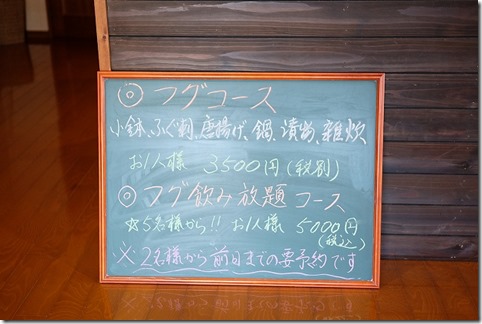 ◎フグコース
小鉢、ふぐ刺、唐揚げ、鍋、漬物、雑炊
お1人様 3500円(税別)
◎フグ飲み放題コース
☆5名様から!! お1人様 5000円
(税込)
※2名様から前日までの要予約です